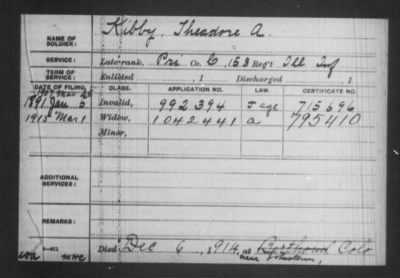 NAME OF SOLDIER: Kibby, Theadore A.
SERVICE: Late rank, Pri Co. C, 153 Reg't Ill Inf
TERM OF SERVICE: Enlisted , 1 Discharged , 1
DATE OF FILING. CLASS. APPLICATION NO. LAW. CERTIFICATE NO.
1907 Mar 25
1891 Jan 5 Invalid, 992394 J age 715696
1915 Mar 1 Widow, 1042441 a 795410
Minor,
ADDITIONAL SERVICES:
REMARKS:
Died Dec 6, 1914, at Berthoud Colo
near Johnstown,